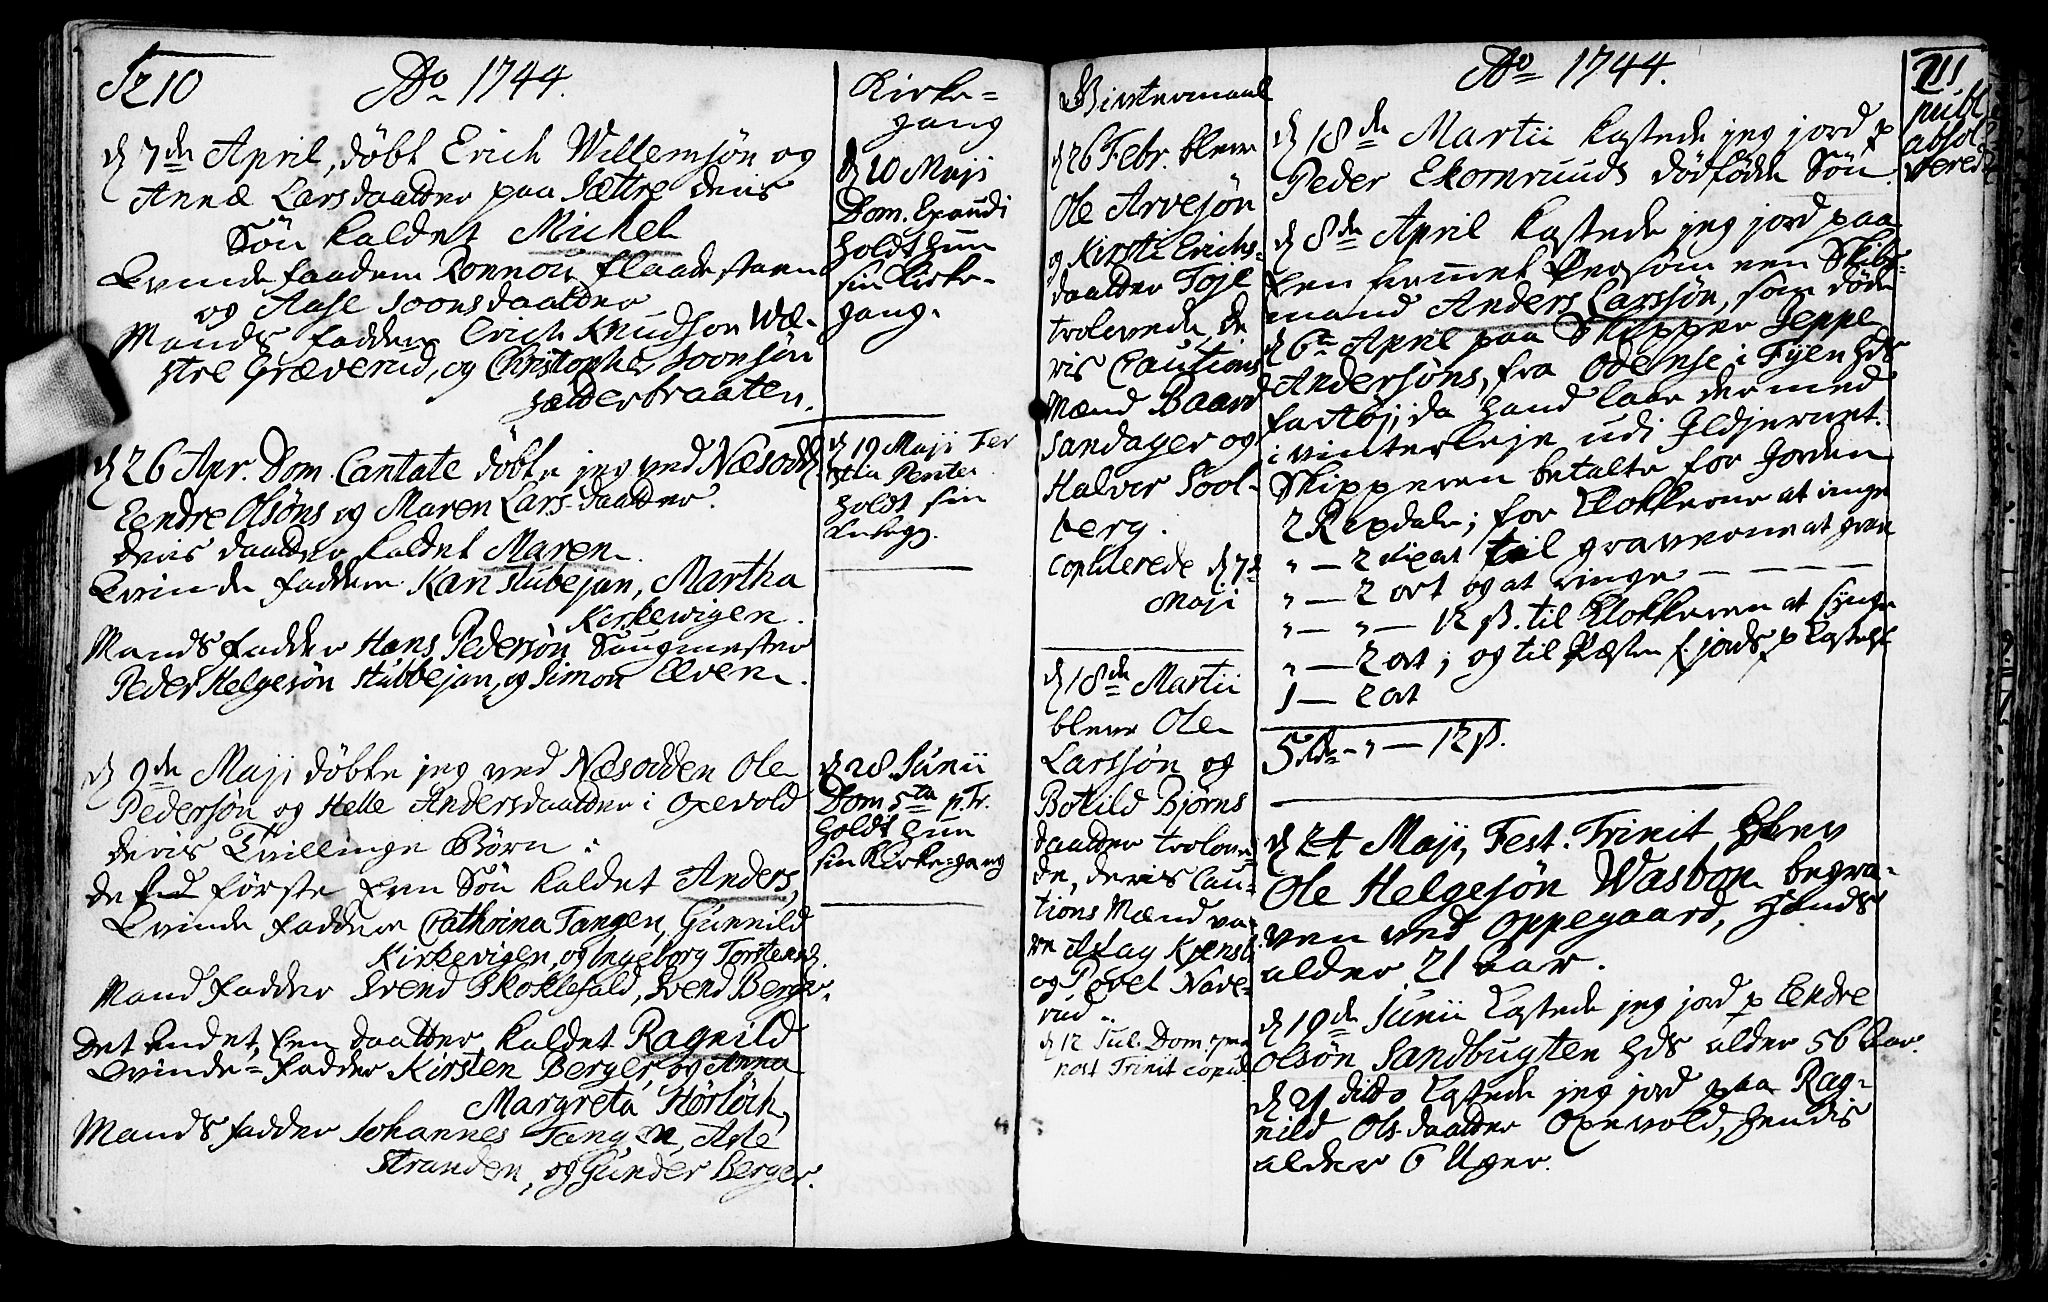 210
Ao 1744.
d 7de April, döbt Erich Willemsön og
Annæ Larsdaatter paa Sættre deris
Sön kaldet Michel
Qvinde faddern Ronnou flaadestaen
og Aase Joonsdaatter
Mands fadder Erich Knudson Wæ-
stre Græverud, og Christopher Joonsön
Halderbraaten.
d 26 Apr. Dom. Cantate döbte jeg ved Næsodd.
Eendre Olsöns og Maren Lars-daatter
deris daatter kaldet Maren
Qvinde faddern Kari Stubejan, Martha
Kirkevigen.
Mands fadder Hans Pedersön Saugmester
Peder Helgesön Stubbejan, og Simon Elven.
d 9de Maji döbte jeg ved Næsodden Ole
Pedersön og Helle Andersdaatter i Oxevold
deris Tvillinge Börn.
de förste Een Sön kaldet Anders,
Qvinde faddere Cathrina Tangen, Gunnild
Kirkevigen, og Ingeborg Torstensd.
Mand fadder Svend Skoklefald, Svend Berger.
Det Andet, Een daatter kaldet Ragnild
Qvinde-fadder Kirsten Berger, og Anna
Margreta Hörlöck,
Mands fadder Johannes Tangen, Asle
Stranden, og Gunder Berger.
Kirke-
gang
d 10 Maji
Dom. Exaudi
holdt hun
sin Kirke-
gang.
d 19 Maji Fer
tia Pente
holdt sin
Kirkeg.
d 28 Junii
Dom 5ta p. Tr.
holdt hun
sin Kirke-gang
Ao 1744.
211
d 26 Febr. blev
Ole Arvesön
og Kirsti Erichs-
daatter Toje
trolovede, de
ris Cautions
Mænd Baard
Sandager og
Halver Sool-
berg.
copulerede d 7de
Maji
d 18de Martii
blev Ole
Larssön og
Botild Björns
daatter trolove-
de, deris Cau-
tions Mænd va-
re Aslag
og Povel Nave-
rud.
d 12 Jul. Dom 7ma
post Trinit copul.
d 18de Martii kastede jeg jord p
Peder Ekornruuds dödfödde Sön.
d 8de April kastede jeg jord paa
Een fremmet Persom een Skibs-
mand Anders Larssön, som döde
d 6te April paa Skipper Jeppe
Andersöns, fra Odense i Fyen hds
fartöj, da hand laae der med
i vinterleje udi Ildjernet.
Skipperen betalte for Jorden
2 Rixdaler; for Klokkerne at ringe
" — 2 ort til graverne at grave
" — 2 ort og at ringe — — — —
" — " — 12 ß. til Klokkeren at synge
" — 2 ort; og til Præsten f. jords p kastelse
1 — 2 ort
5 Rdr — " — 12 ß.
d 24 Maji, Fest. Trinit blev
Ole Helgesön Wasbon begra-
ven ved Oppegaard, hands
alder 21 Aar.
d 19de Junii kastede jeg jord p Eendre
Olsön Sandbugten hds alder 56 Aar.
d 21 dito kastede jeg jord paa Rag-
nild Ols-daatter Oxevold, hendis
alder 6 Uger.
publ.
absol
verede